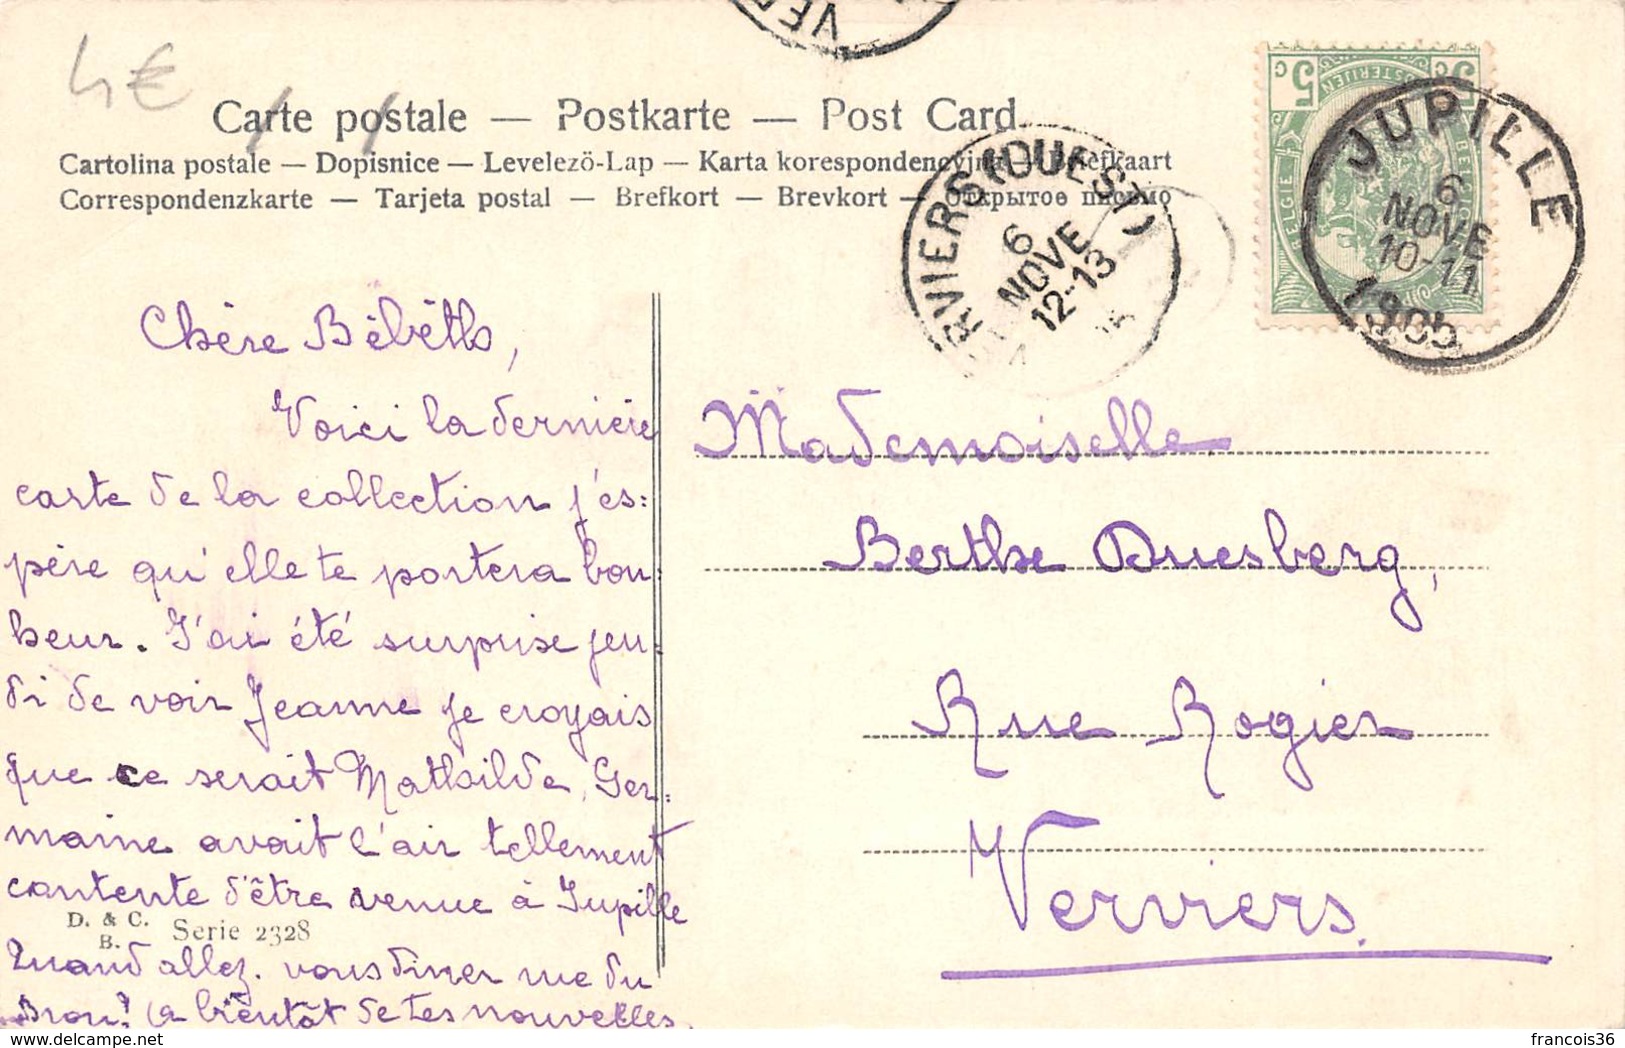 4€
VE
Carte postale — Postkarte — Post Card
Cartolina postale — Dopisnice — Levelezö-Lap — Karta korespondencyjna — Briefkaart
Correspondenzkarte — Tarjeta postal — Brefkort — Brevkort — Открытое письмо
5 c
5 c
BELGIE
JUPILLE
6
NOVE
10-11
1905
RVIERS (OUEST)
6
NOVE
12-13
Chère Bébéth,
Voici la dernière
carte de la collection j'es=
père qu'elle te portera bon=
heur. J'ai été surprise jeu-
di de voir Jeanne je croyais
que ce serait Mathilde, Ger=
maine avait l'air tellement
contente d'être venue à Jupille
Quand allez-vous diner rue du
? (a bientôt de tes nouvelles.
D. & C.
B.
Serie 2328
Mademoiselle
Berthe Duesberg,
Rue Rogier
Verviers.
delcampe.net
francois36